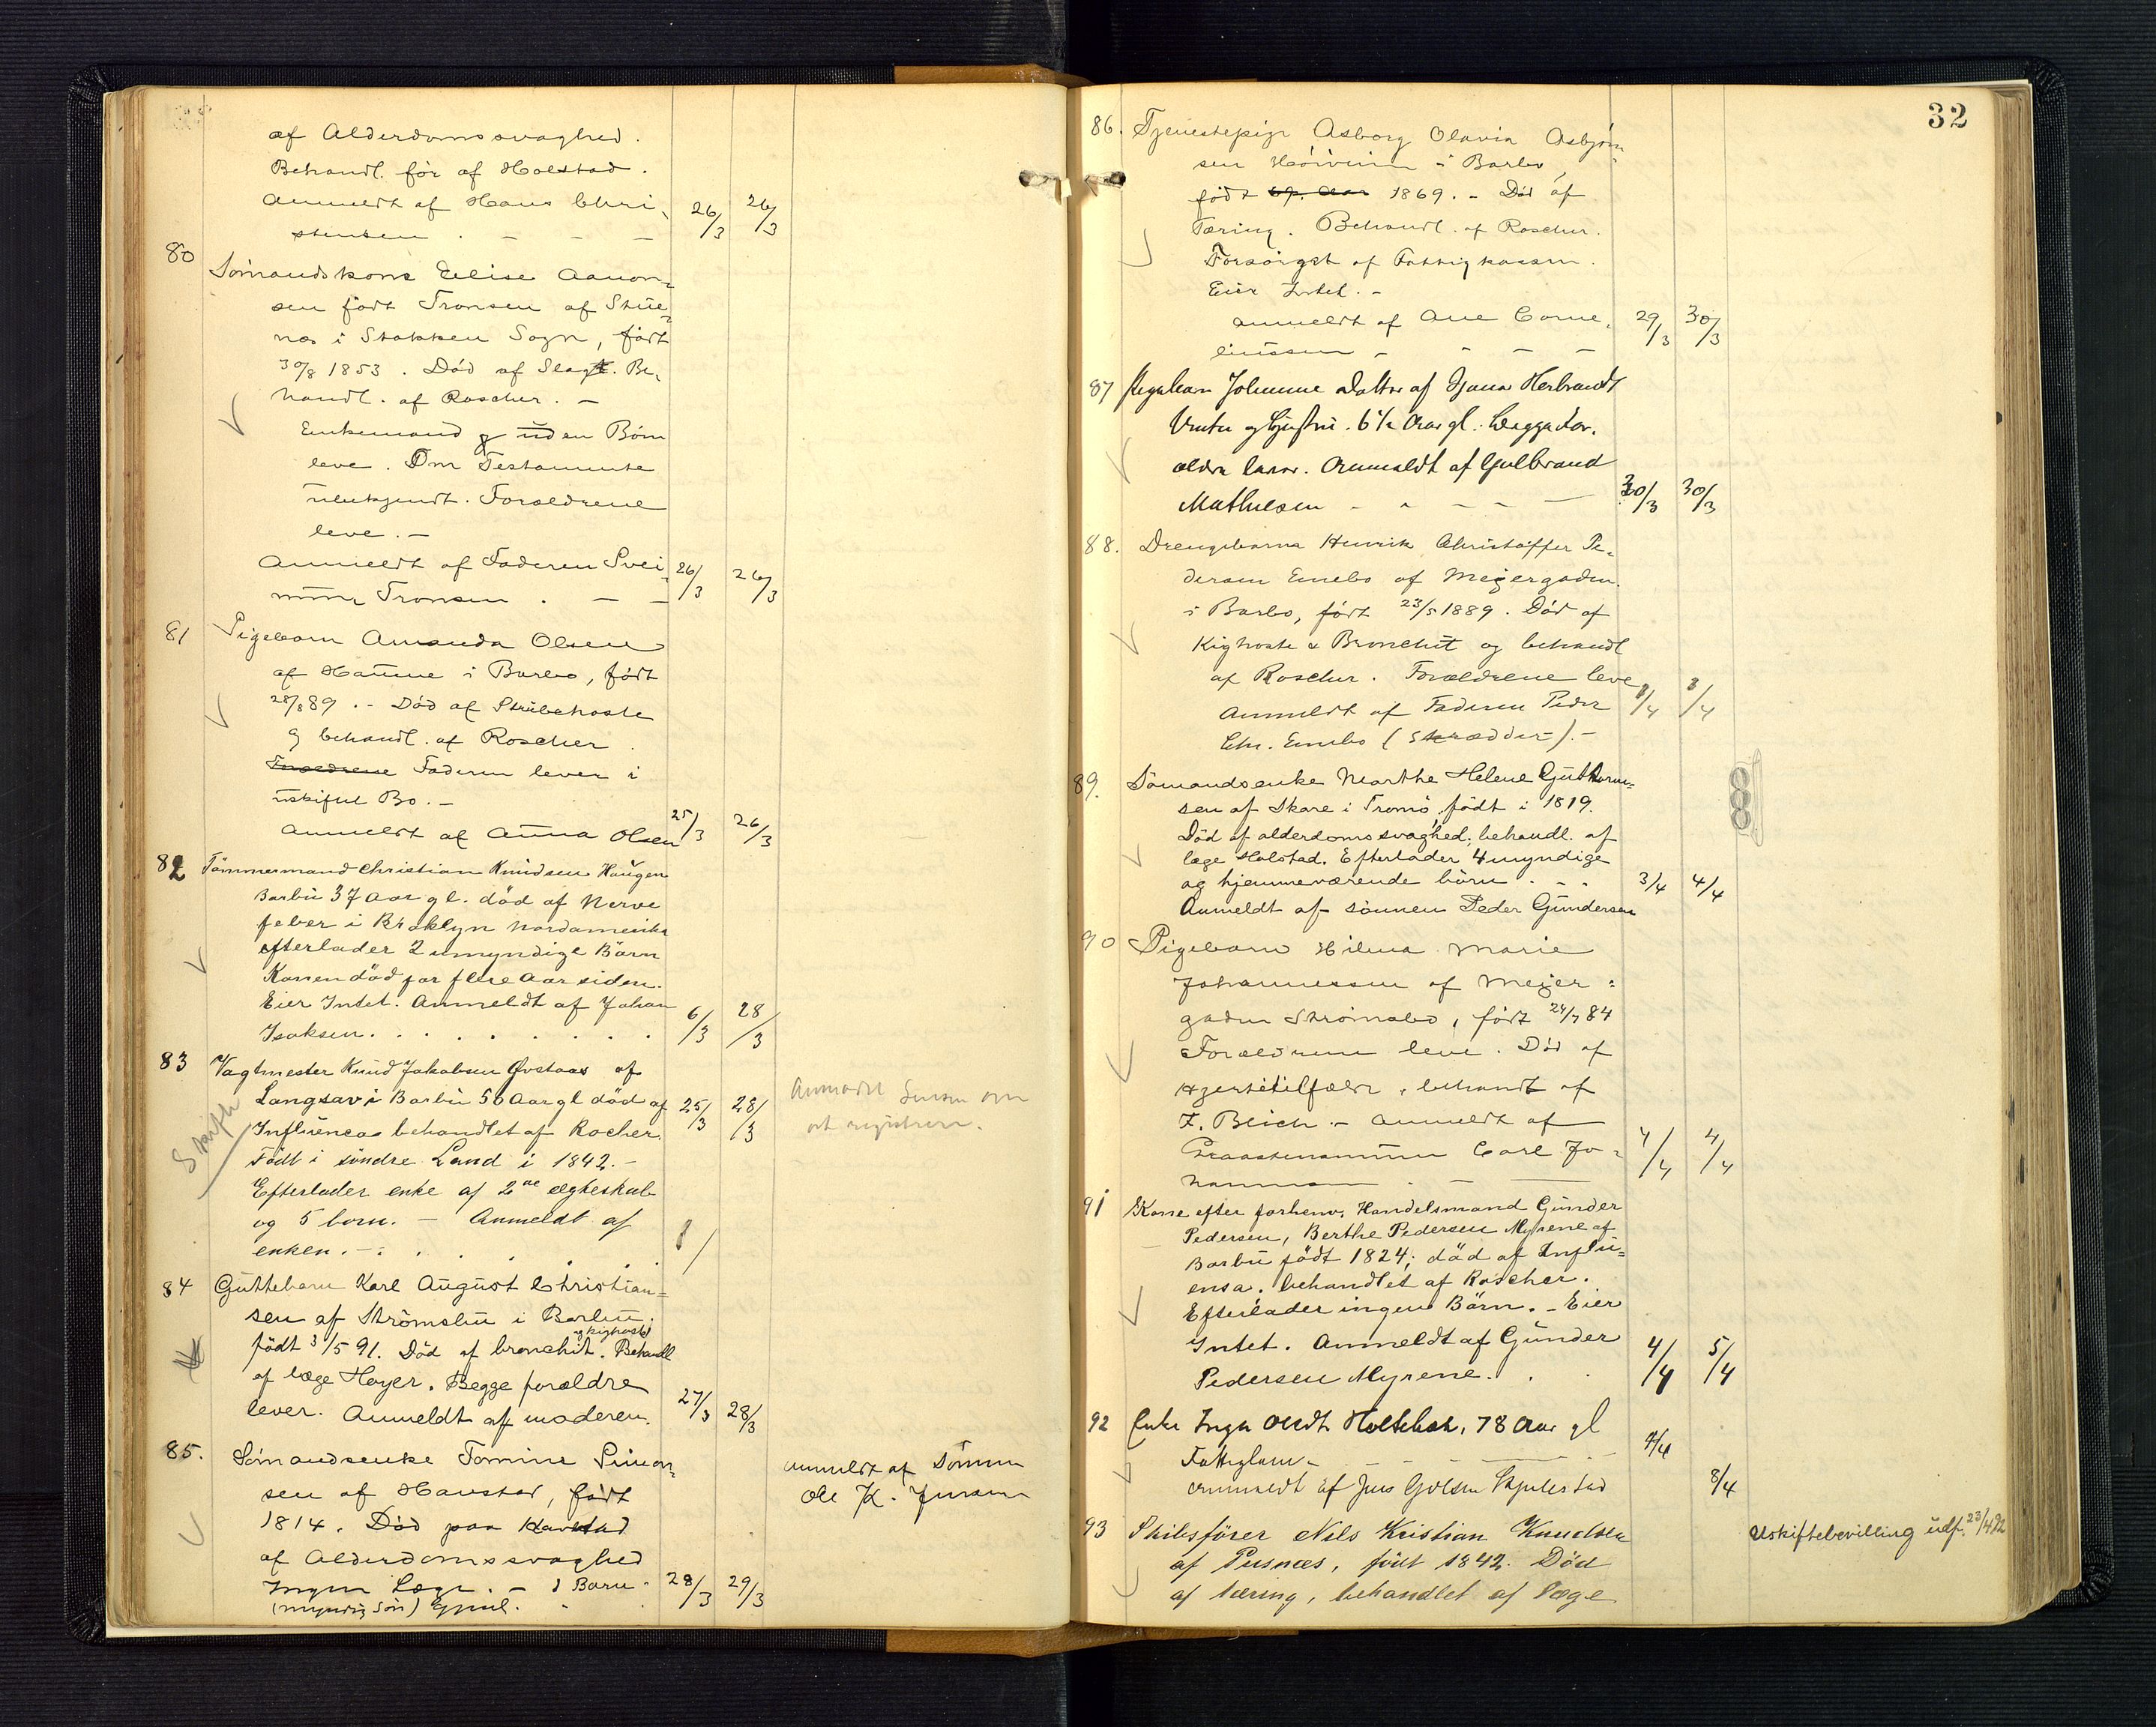 af Alderdomssvaghed.
Behandl. før af Holstad.
Anmeldt af Hans Chri-
stensen . — — — 26/3 26/3
80 Sømandskone Elise Aanon-
sen født Tronsen af Stue-
næs i Stokken Sogn, født
30/8 1853. Død af Slag. Be-
handl. af Roscher. —
Enkemand og uden Børn
leve. Om Testamente
ubekjendt. Forældrene
leve. —
Anmeldt af Faderen Svei-
nung Tronsen . — — 26/3 26/3
81 Pigebarn Amanda Olsen
af Haune i Barbo, født
28/8 89. - Død af Strubehoste
og behandl. af Roscher.
Forældrene Faderen lever i
uskiftet Bo. —
Anmeldt af Anna Olsen 25/3 26/3
82 Tømmermand Christian Knudsen Haugen
Barbu 37 Aar gl. død af Nerve
feber i Broklyn Nordamerika
efterlader 2 umyndige Børn
Konen død for flere Aar siden.
Eier Intet. Anmeldt af Johan
Isaksen. . . . . . . 6/3 28/3
83 Vagtmester Knud Jakobsen Øvstaas af
Langsæv i Barbu 50 Aar gl død af 25/3 28/3
Influenca behandlet af Rocher.
Født i søndre Land i 1842. -
Efterlader enke af 2de ægteskab
og 5 born. — Anmeldt af
enken. - . . . . .
Skifte
Anmodet om
at registrere.
84 Guttebarn Karl August Christian-
sen af Strømsbu i Barbu.
født 3/5 91. Død af bronchit. og kighoste Behandl
af læge Høyer. Begge forældre
lever. Anmeldt af moderen. 27/3 28/3
85. Sømandsenke Tomine Simon-
sen af Havstad, født
1814. Død paa Havstad
af Alderdomssvaghed
Ingen Læge. — 1 Barn 28/3 29/3
(myndig Søn)
Anmeldt af Sønnen
Ole K. Jensen
32
86. Tjenestepige Asborg Olavia Asbjørn-
sen i Barbo,
født 1869. - Død af
Tæring. Behandl. af Roscher.
Forsørget af Fattigkassen.
Eier Intet. -
Anmeldt af Ane Corne-
liussen - - - - 29/3 30/3
87 Pigebarn Johanne Datter af Herbrandt
6 1/2 Aar gl. Begge For-
ældre lever. Anmeldt af Gulbrand
Mathiesen - - - - 30/3 30/3
88. Drengebarn Henrik Christoffer Pe-
dersen Enebo af Meiergaden
i Barbo, født 23/5 1889. Død af
Kighoste & Bronchit og behandl
af Roscher. Forældrene leve
Anmeldt af Faderen Peder
Chr. Enebo (Skrædder). -
89. Sømandsenke Marthe Helene Guttorm-
sen af Skare i Tromø, født i 1819.
Død af alderdomssvaghed; behandl. af
læge Holstad. Efterlader 4 myndige
og hjemmeværende børn . - - 3/4 4/4
Anmeldt af sønnen Peder Gundersen
90 Pigebarn Hilma Marie
Johannessen af Meier-
gaden Strømsbo, født 24/7 84
Forældrene leve. Død af
Hjertetilfælde, behandt af
F. Blich. - Anmeldt af
Carl Jo-
hannessen - — 4/4 4/4
91 Kone efter forhenv. Handelsmand Gunder
Pedersen, Berthe Pedersen Myrene af
Barbu født 1824; død af Influ-
ensa. behandlet af Roscher.
Efterlader ingen Børn. - Eier
Intet. Anmeldt af Gunder
Pedersen Myrene. . . 4/4 5/4
92 Enke Inger Holtebak, 78 Aar gl
Fattiglem - 4/4
Anmeldt af Jens 8/4
93 Skibsfører Nils Kristian Knudsen
af Pusnæs, født 1842. Død
af tæring, behandlet af Læge
Uskiftebevilling udf. 23/4 92